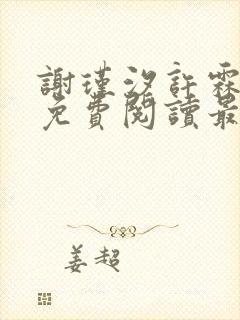 謝瑾汐許霖
免費閱讀最
姜超